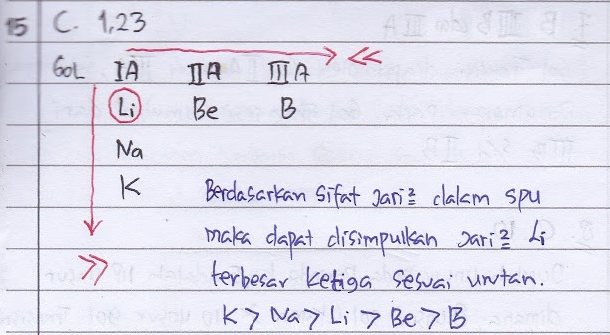 15 C. 1,23
<<
GOL IA IIA IIIA
Li Be B
Na
K
Berdasarkan sifat jari² dalam spu
maka dapat disimpulkan jari² Li
>>
terbesar ketiga sesuai urutan.
K > Na > Li > Be > B